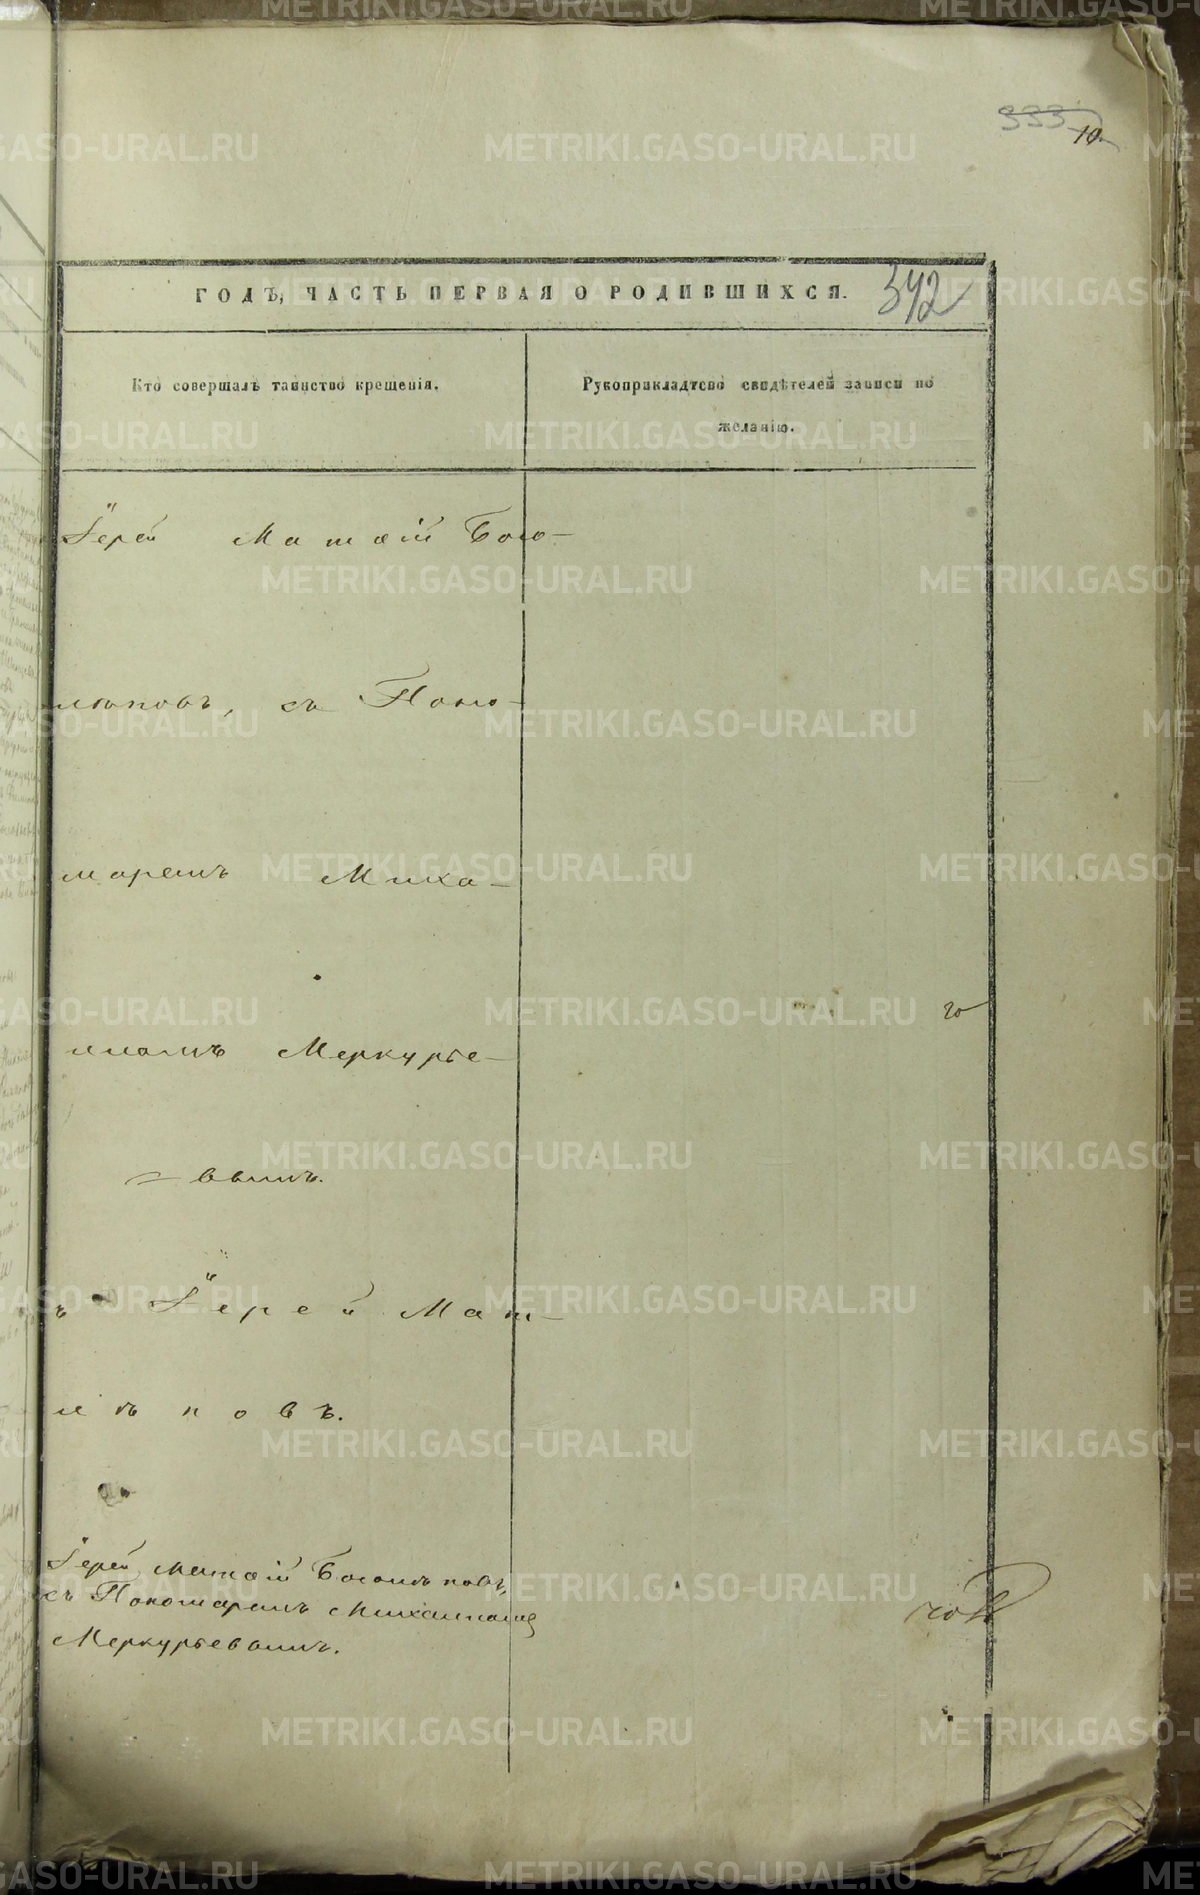 333
10
ГОДЪ, ЧАСТЬ ПЕРВАЯ О РОДИВШИХСЯ. 342
Кто совершалъ таинство крещенія.
Рукоприкладтсво свидѣтелей записи по
желанію.
Іерей Матѳій Бого-
лѣповъ, съ Поно-
маремъ Миха-
иломъ Меркурье-
вымъ.
Іерей Мат-
лѣповъ.
Іерей Матѳій Боголѣповъ,
съ Пономаремъ Михаиломъ
Меркурьевымъ.
METRIKI.GASO-URAL.RU